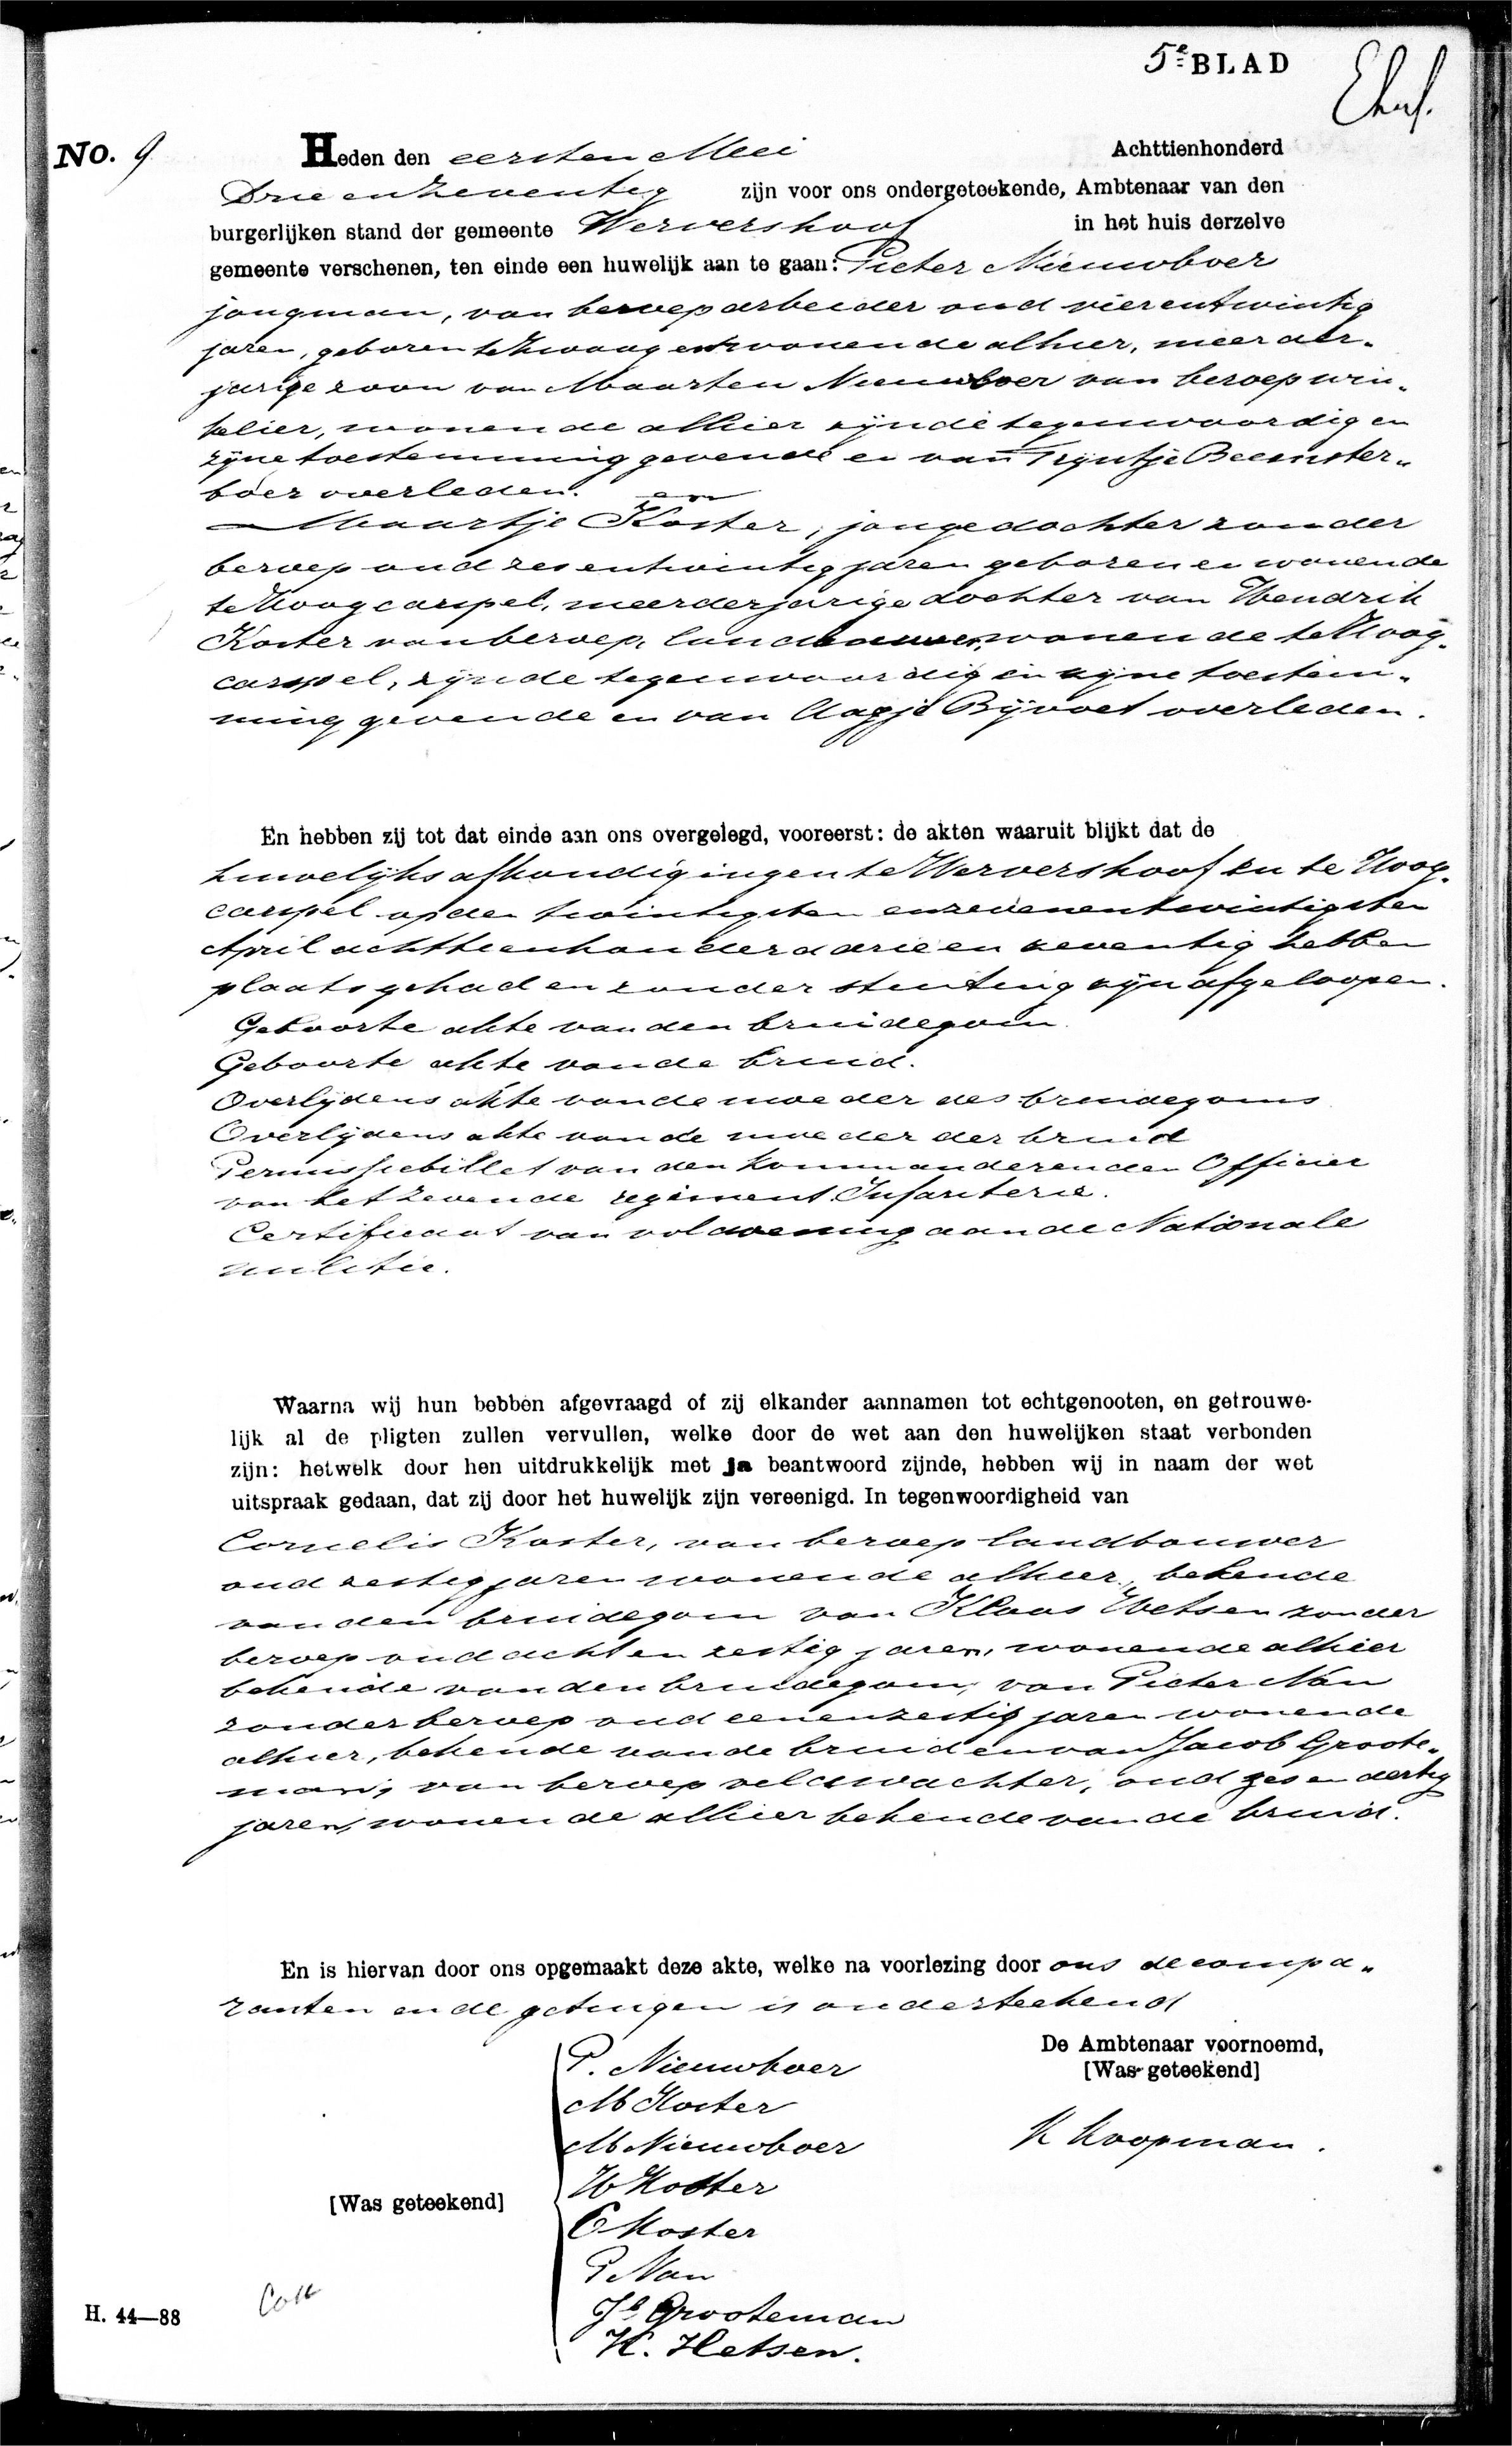 5e BLAD
No. 9
Heden den eersten Mei Achttienhonderd
Drie en zeventig zijn voor ons ondergeteekende, Ambtenaar van den
burgerlijken stand der gemeente Wervershoof in het huis derzelve
gemeente verschenen, ten einde een huwelijk aan te gaan: Pieter Nieuwboer
jongman, van beroep arbeider oud vierentwintig
jaren, geboren te Zwaag en wonende alhier, meerder-
jarige zoon van Maarten Nieuwboer van beroep win-
kelier, wonende alhier zijnde tegenwoordig en
zijne toestemming gevende en van Trijntje Beemster-
boer overleden. en
Maartje Koster, jongedochter zonder
beroep oud zesentwintig jaren geboren en wonende
te Hoogcarspel, meerderjarige dochter van Hendrik
Koster van beroep landbouwer, wonende te Hoog-
carspel, zijnde tegenwoordig en zijne toestem-
ming gevende en van Aagje Bijvoet overleden.
En hebben zij tot dat einde aan ons overgelegd, vooreerst: de akten waaruit blijkt dat de
huwelijks afkondigingen te Wervershoof en te Hoog-
carspel op den twintigsten en zevenentwintigsten
April achttienhonderd drie en zeventig hebben
plaats gehad en zonder stuiting zijn afgeloopen.
Geboorte akte van den bruidegom.
Geboorte akte van de bruid.
Overlijdens akte van de moeder des bruidegoms
Overlijdens akte van de moeder der bruid
Permissiebillet van den kommanderenden Officier
van het zevende regiment Infanterie.
Certificaat van voldoening aan de Nationale
militie.
Waarna wij hun hebben afgevraagd of zij elkander aannamen tot echtgenooten, en getrouwe-
lijk al de pligten zullen vervullen, welke door de wet aan den huwelijken staat verbonden
zijn: hetwelk door hen uitdrukkelijk met ja beantwoord zijnde, hebben wij in naam der wet
uitspraak gedaan, dat zij door het huwelijk zijn vereenigd. In tegenwoordigheid van
Cornelis Koster, van beroep landbouwer
oud zestig jaren wonende alhier, bekende
van den bruidegom van Klaas Hetsen zonder
beroep oud acht en zestig jaren, wonende alhier
bekende van den bruidegom, van Pieter Nan
zonder beroep oud eenenzestig jaren wonende
alhier, bekende van de bruid en van Jacob Groote-
man, van beroep veldwachter, oud zes en dertig
jaren, wonende alhier bekende van de bruid.
En is hiervan door ons opgemaakt deze akte, welke na voorlezing door ons de compa-
ranten en de getuigen is onderteekend
De Ambtenaar voornoemd,
[Was geteekend]
P. Nieuwboer
M Koster
M Nieuwboer
K Koopman.
H Koster
[Was geteekend]
C Koster
P Nan
Jb Grooteman
K. Hetsen.
H. 44—88